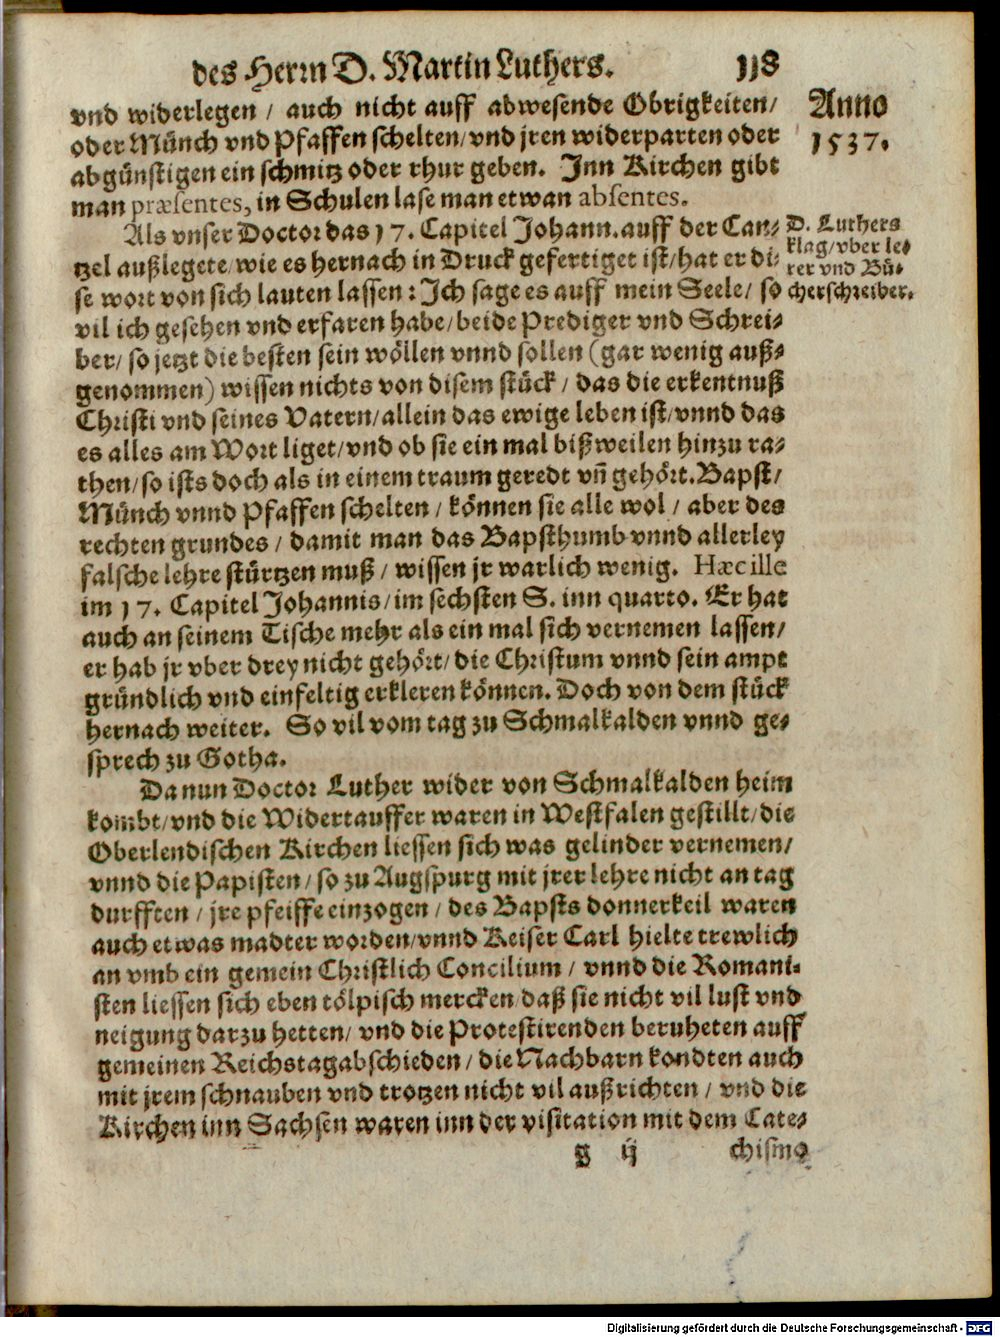 des Herrn D. Martin Luthers. 118
vnd widerlegen / auch nicht auff abwesende Obrigkeiten/
oder Münch vnd Pfaffen schelten/ vnd jren widerparten oder
abgünstigen ein schmitz oder rhur geben. Jnn Kirchen gibt
man præsentes, in Schulen lase man etwan absentes.
Anno
1537.
Als vnser Doctor das 17. Capitel Johann. auff der Can-
tzel außlegete/ wie es hernach in Druck gefertiget ist/ hat er di-
se wort von sich lauten lassen: Jch sage es auff mein Seele/ so
vil ich gesehen vnd erfaren habe/ beide Prediger vnd Schrei-
ber/ so jetzt die besten sein wöllen vnnd sollen (gar wenig auß-
genommen) wissen nichts von disem stück / das die erkentnuß
Christi vnd seines Vatern/ allein das ewige leben ist/ vnnd das
es alles am Wort liget/ vnd ob sie ein mal bißweilen hinzu ra-
then/ so ists doch als in einem traum geredt vñ gehört. Bapst/
Münch vnnd Pfaffen schelten / können sie alle wol / aber des
rechten grundes / damit man das Bapsthumb vnnd allerley
falsche lehre stürtzen muß / wissen jr warlich wenig. Hæc ille
im 17. Capitel Johannis/ im sechsten S. inn quarto. Er hat
auch an seinem Tische mehr als ein mal sich vernemen lassen/
er hab jr vber drey nicht gehört/ die Christum vnnd sein ampt
gründlich vnd einfeltig erkleren können. Doch von dem stück
hernach weiter. So vil vom tag zu Schmalkalden vnnd ge-
sprech zu Gotha.
D. Luthers
klag/ vber le-
rer vnd Bü-
cherschreiber.
Da nun Doctor Luther wider von Schmalkalden heim
kombt/ vnd die Widertauffer waren in Westfalen gestillt/ die
Oberlendischen Kirchen liessen sich was gelinder vernemen/
vnnd die Papisten/ so zu Augspurg mit jrer lehre nicht an tag
durfften / jre pfeiffe einzogen / des Bapsts donnerkeil waren
auch etwas madter worden/ vnnd Keiser Carl hielte trewlich
an vmb ein gemein Christlich Concilium / vnnd die Romani-
sten liessen sich eben tölpisch mercken/ daß sie nicht vil lust vnd
neigung darzu hetten/ vnd die Protestirenden beruheten auff
gemeinen Reichstagabschieden / die Nachbarn kondten auch
mit jrem schnauben vnd trotzen nicht vil außrichten / vnd die
Kirchen inn Sachsen waren inn der visitation mit dem Cate-
g ij chismo
Digitalisierung gefördert durch die Deutsche Forschungsgemeinschaft - DFG